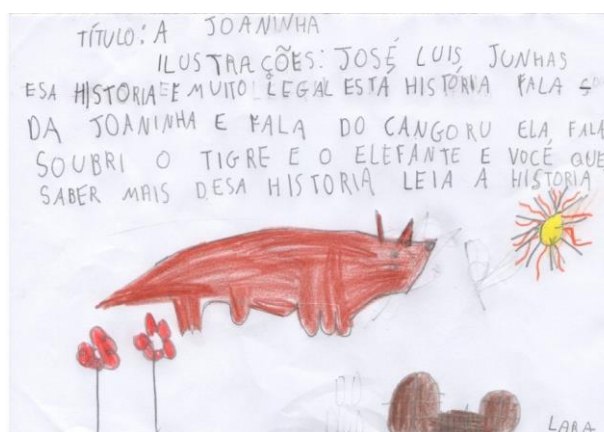 TÍTULO: A JOANINHA
ILUSTRAÇÕES: JOSÉ LUIS JUNHAS
ESA HISTÓRIA É MUITO LEGAL ESTÁ HISTÓRIA FALA
DA JOANINHA E FALA DO CANGORU ELA FALA
SOUBRI O TIGRE E O ELEFANTE E VOCÊ QUE
SABER MAIS DESA HISTORIA LEIA A HISTORIA
LARA